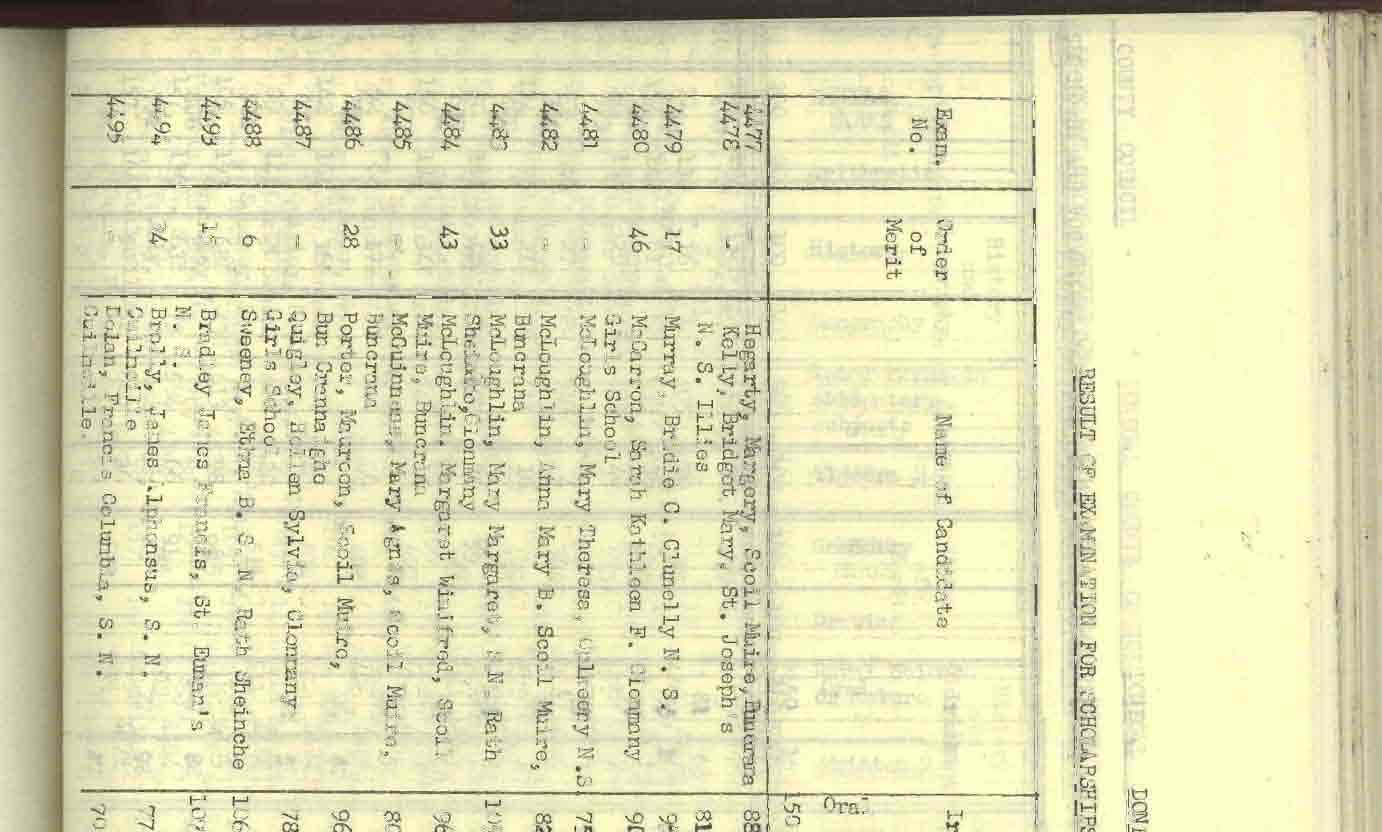 RESULT OF EXAMINATION FOR SCHOLARSHIPS
Exam. No. Order of Merit Name of Candidate
Oral
150
4477 - Hegarty, Margery, Scoil Muire, Buncrana 88
4478 - Kelly, Bridget Mary, St. Joseph's 81
N. S. Illies
4479 17 Murray, Bridie C. Clunelly N. S.
4480 46 McCarron, Sarah Kathleen F. Clonmany 90
Girls School
4481 - McLoughlin, Mary Theresa, N.S. 75
4482 - McLoughlin, Anna Mary B. Scoil Muire, 82
Buncrana
4483 33 McLoughlin, Mary Margaret, S.N. Rath
Sheinche, Clonmany
4484 43 McLoughlin, Margaret Winifred, Scoil 96
Muire, Buncrana
4485 - McGuinness, Mary Agnes, Scoil Muire, 80
Buncrana
4486 28 Porter, Maureen, Scoil Muire, 96
Bun Crannaigho
4487 - Quigley, Sylvia, Clonmany 78
Girls School
4488 6 Sweeney, Ethna B. S. N. Rath Sheinche 106
4493 Bradley James Francis, St. Eunan's 107
N. S.
4494 34 Brolly, James Alphonsus, S. N. 77
4495 - Dolan, Francis Columba, S. N. 70